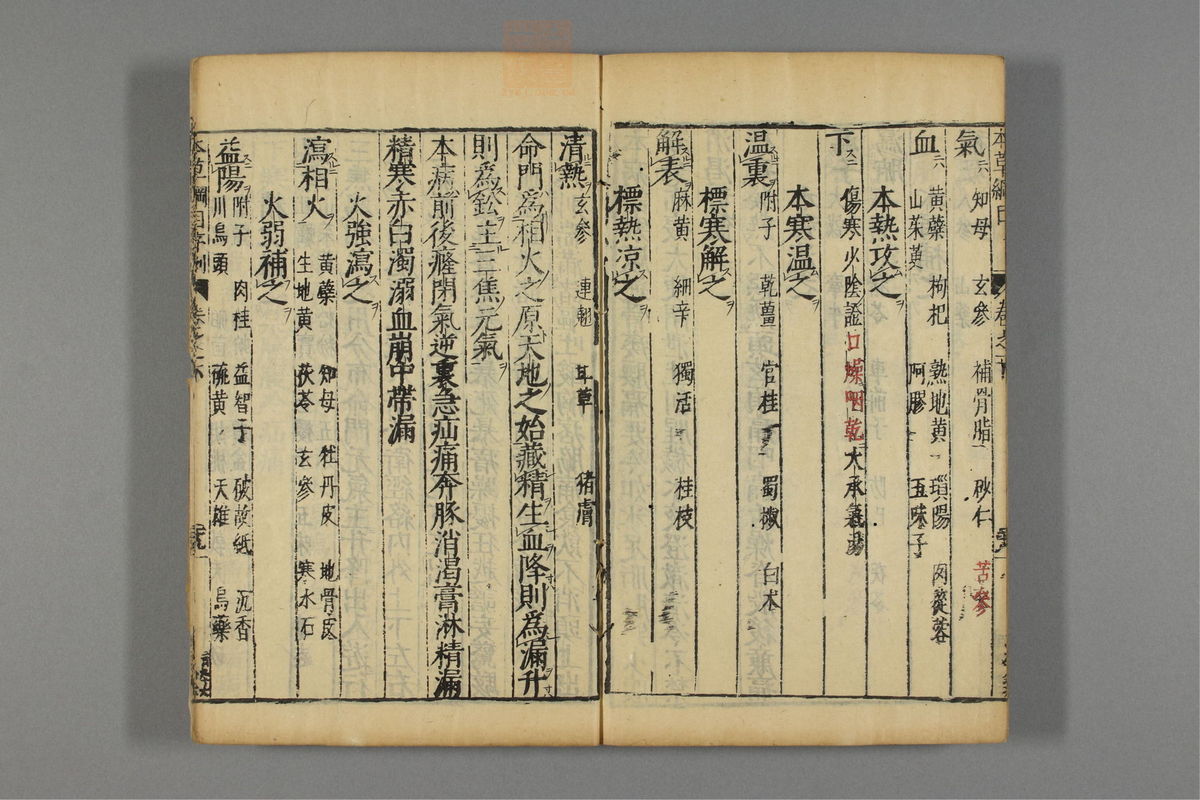 本草綱目
氣 知母 玄參 補骨脂 砂仁 苦參
血 黄蘗 枸杞 熟地黄 瑣陽 肉蓯蓉
山茱萸 阿膠 五味子
本熱攻之
下 傷寒少陰證口燥咽乾大承氣湯
本寒温之
温裏 附子 乾薑 官桂 蜀椒 白术
標寒解之
解表 麻黄 細辛 獨活 桂枝
標熱凉之
清熱 玄參 連翹 甘草 猪膚
命門爲相火之原天地之始藏精生血降則爲漏升
則爲鉛主三焦元氣
本病前後癃閉氣逆裏急疝痛奔豚消渴膏淋精漏
精寒赤白濁溺血崩中帶漏
火強瀉之
瀉相火 黄蘗 知母 牡丹皮 地骨皮
生地黄 茯苓 玄參 寒水石
火弱補之
益陽 附子 肉桂 益智子 破故紙 沉香
川烏頭 硫黄 天雄 烏藥
本草綱目序例